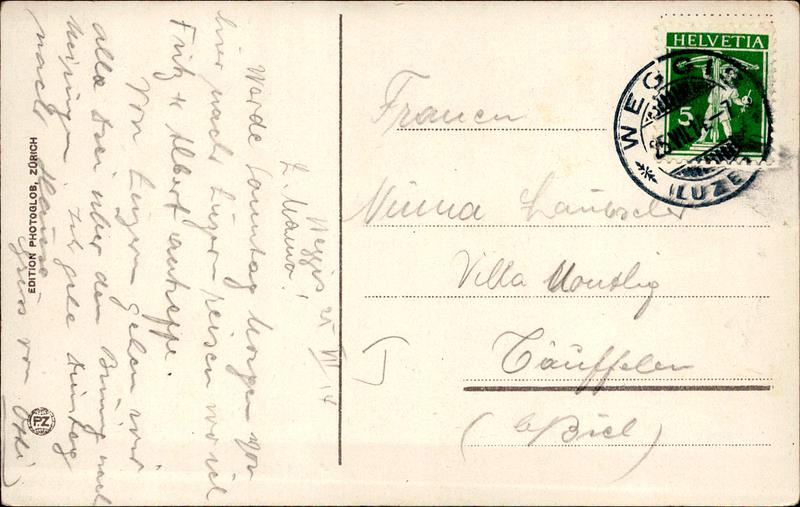 Weggis 25 VII 14
L. Mama!
Werde Sonntag Morgen von
hier nach Luzern reisen wo ich
Fritz & Albert antreffe.
Von Luzern gehen wir
alle drei über den Brünig nach
Meiringen. Ich gehe Dienstag
nach Hause
Gruss von
EDITION PHOTOGLOB, ZÜRICH
PZ
HELVETIA
5
WEGGIS
25.VII.14
(LUZE
Frauen
Minna Laubscher
Villa
Täuffelen
(b/Biel)